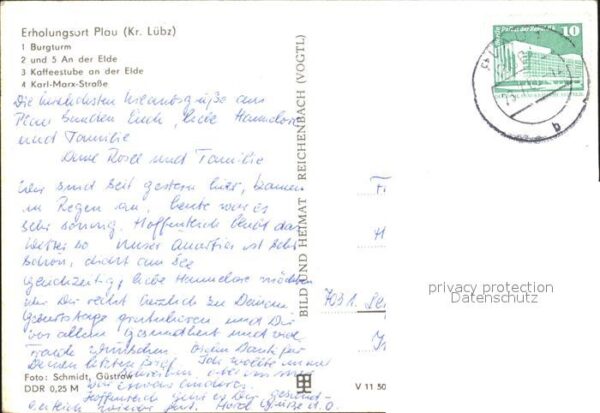 Erholungsort Plau (Kr. Lübz)
1 Burgturm
2 und 5 An der Elde
3 Kaffeestube an der Elde
4 Karl-Marx-Straße
Die herzlichsten Urlaubsgrüße aus
Plau senden Euch, liebe Hannelore
und Familie
Rosel und Familie
Wir sind seit gestern hier, kamen
im Regen an, heute war es
sehr sonnig. Hoffentlich bleibt das
Wetter so. Unser Quartier ist sehr
schön, dicht am See
Gleichzeitig, liebe Hannelore möchten
wir Dir recht herzlich zu Deinem
Geburtstage gratulieren und Dir
vor allem Gesundheit und viel
Freude wünschen. Vielen Dank für
Deinen letzten Brief. Ich wollte
Hoffentlich geht es Dir
wieder gut.
Foto: Schmidt, Güstrow
DDR 0,25 M
BILD UND HEIMAT REICHENBACH (VOGTL)
V 11 50
7031
10
b
privacy protection
Datenschutz